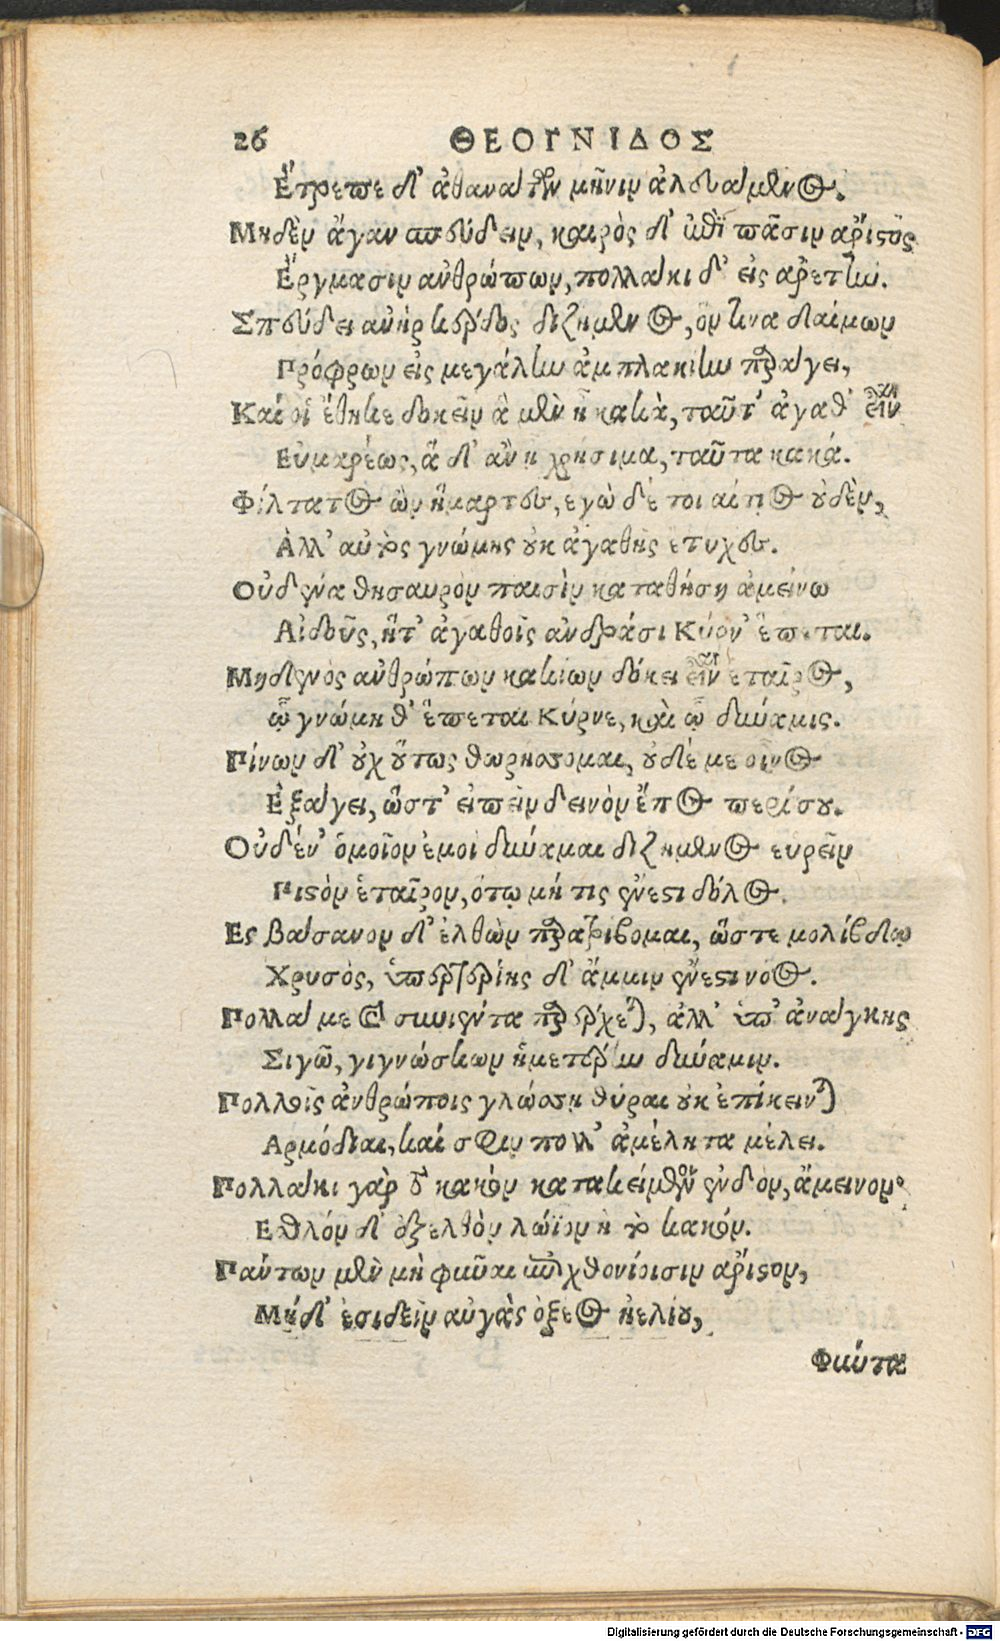 26 ΘΕΟΓΝΙΔΟΣ
Ἔτρεπε δ' ἀθανάτων μῆνιν ἀλευάμενος.
Μηδὲν ἄγαν σπεύδειν, καιρὸς δ' ἐπὶ πᾶσιν ἄριστος
Ἔργμασιν ἀνθρώπων, πολλάκι δ' εἰς ἀρετὴν.
Σπεύδει ἀνὴρ κέρδος διζήμενος, ὅν τινα δαίμων
Πρόφρων εἰς μεγάλην ἀμπλακίην παράγει,
Καί οἱ ἔθηκε δοκεῖν ἃ μὲν ᾖ κακὰ, ταῦτ' ἀγαθ' εἶναι
Εὐμαρέως, ἃ δ' ἂν ᾖ χρήσιμα, ταῦτα κακά.
Φίλτατος ὢν ἥμαρτες, ἐγὼ δέ τοι αἴτιος οὐδὲν,
Ἀλλ' αὐτὸς γνώμης οὐκ ἀγαθῆς ἔτυχες.
Οὐδένα θησαυρὸν παισὶν καταθήσῃ ἀμείνω
Αἰδοῦς, ἥτ' ἀγαθοῖς ἀνδράσι Κύρν' ἕπεται.
Μηδενὸς ἀνθρώπων κακίων δόκει εἶναι ἑταῖρος,
ᾧ γνώμη θ' ἕπεται Κύρνε, καὶ ᾧ δύναμις.
Πίνων δ' οὐχ οὕτως θωρήσομαι, οὐδέ με οἶνος
Ἐξάγει, ὥστ' εἰπεῖν δεινὸν ἔπος περί σου.
Οὐδέν' ὁμοῖον ἐμοὶ δύναμαι διζήμενος εὑρεῖν
Πιστὸν ἑταῖρον, ὅτῳ μή τις ἔνεστι δόλος.
Ἐς βάσανον δ' ἐλθὼν παρατρίβομαι, ὥστε μολίβδῳ
Χρυσός, ὑπερτερίης δ' ἄμμιν ἔνεστι νόος.
Πολλά με καὶ συνιέντα παρέρχεται, ἀλλ' ὑπ' ἀνάγκης
Σιγῶ, γιγνώσκων ἡμετέρην δύναμιν.
Πολλοῖς ἀνθρώποις γλώσσῃ θύραι οὐκ ἐπίκεινται
Ἁρμόδιαι, καί σφιν πολλ' ἀμέλητα μέλει.
Πολλάκι γὰρ τὸ κακὸν κατακείμενον ἔνδον, ἄμεινον.
Ἐσθλόν δ' ἐξελθὸν λώϊον ἢ τὸ κακόν.
Πάντων μὲν μὴ φῦναι ἐπιχθονίοισιν ἄριστον,
Μήδ' ἐσιδεῖν αὐγὰς ὀξέος ἠελίου,
Φύντα
Digitalisierung gefördert durch die Deutsche Forschungsgemeinschaft - DFG